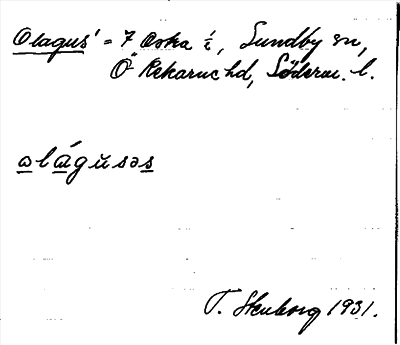 Olagus' = 7 Aska i, Sundby sn,
Ö Rekarne hd, Söderm. l.
ɷlágŭsəs
T. Stenborg 1931.